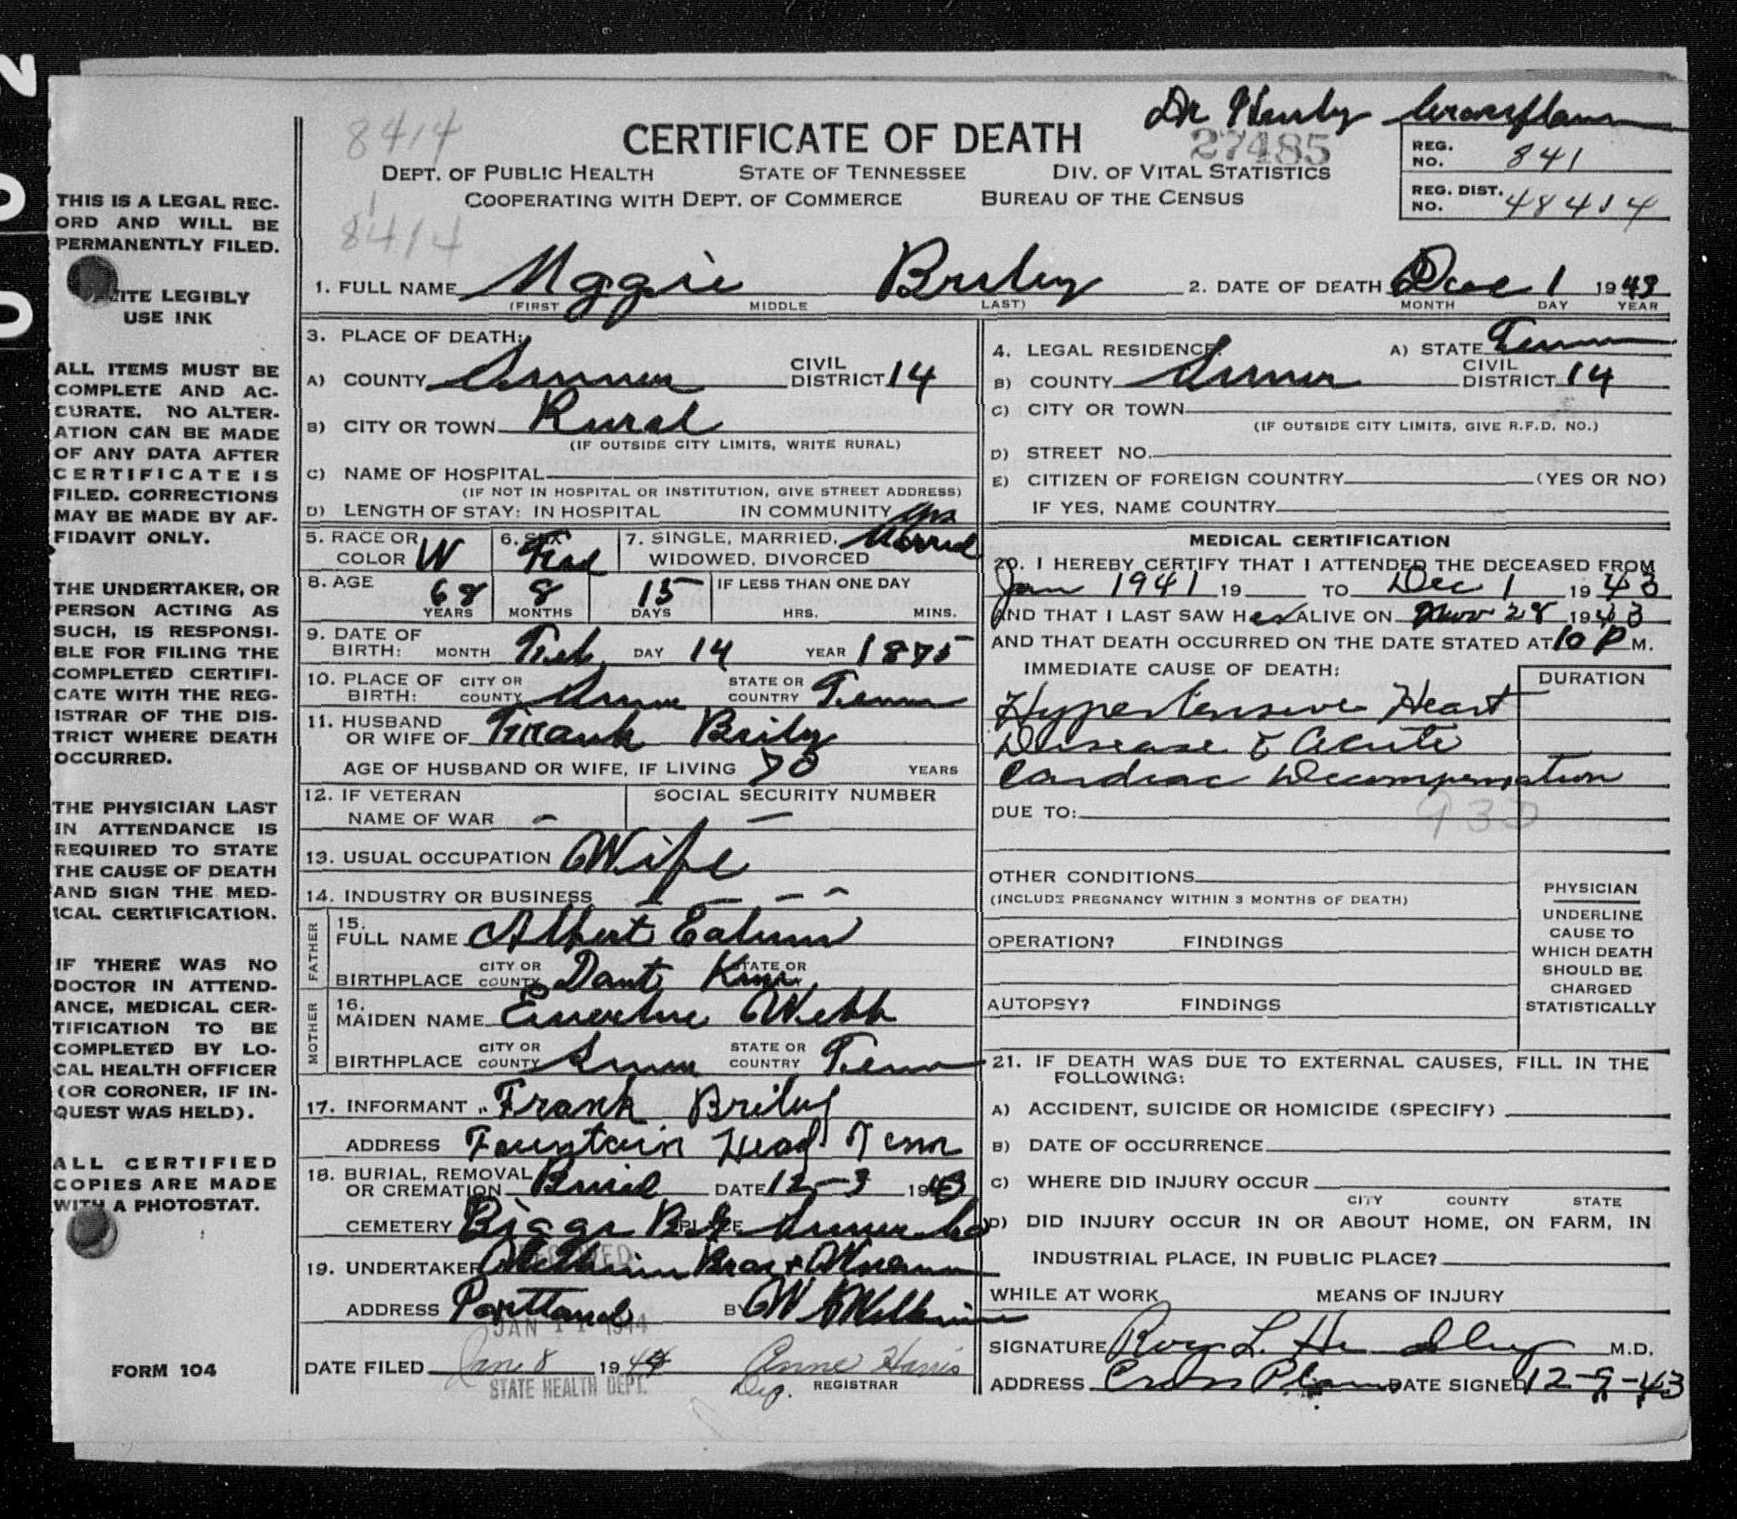 8414
CERTIFICATE OF DEATH
27485
DEPT. OF PUBLIC HEALTH STATE OF TENNESSEE DIV. OF VITAL STATISTICS
COOPERATING WITH DEPT. OF COMMERCE BUREAU OF THE CENSUS
REG. NO. 841
REG. DIST. NO. 48414
8414
THIS IS A LEGAL REC-
ORD AND WILL BE
PERMANENTLY FILED.
LEGIBLY
USE INK
ALL ITEMS MUST BE
COMPLETE AND AC-
CURATE. NO ALTER-
ATION CAN BE MADE
OF ANY DATA AFTER
CERTIFICATE IS
FILED. CORRECTIONS
MAY BE MADE BY AF-
FIDAVIT ONLY.
THE UNDERTAKER, OR
PERSON ACTING AS
SUCH, IS RESPONSI-
BLE FOR FILING THE
COMPLETED CERTIFI-
CATE WITH THE REG-
ISTRAR OF THE DIS-
TRICT WHERE DEATH
OCCURRED.
THE PHYSICIAN LAST
IN ATTENDANCE IS
REQUIRED TO STATE
THE CAUSE OF DEATH
AND SIGN THE MED-
ICAL CERTIFICATION.
IF THERE WAS NO
DOCTOR IN ATTEND-
ANCE, MEDICAL CER-
TIFICATION TO BE
COMPLETED BY LO-
CAL HEALTH OFFICER
(OR CORONER, IF IN-
QUEST WAS HELD).
ALL CERTIFIED
COPIES ARE MADE
WITH A PHOTOSTAT.
FORM 104
1. FULL NAME Mggie Briley 2. DATE OF DEATH Dec 1 1943
(FIRST MIDDLE LAST) MONTH DAY YEAR
3. PLACE OF DEATH:
A) COUNTY Sumner CIVIL DISTRICT 14
B) CITY OR TOWN Rural
(IF OUTSIDE CITY LIMITS, WRITE RURAL)
C) NAME OF HOSPITAL
(IF NOT IN HOSPITAL OR INSTITUTION, GIVE STREET ADDRESS)
D) LENGTH OF STAY: IN HOSPITAL IN COMMUNITY
5. RACE OR COLOR W 6. SEX Fem 7. SINGLE, MARRIED, WIDOWED, DIVORCED Married
8. AGE 68 YEARS 8 MONTHS 15 DAYS IF LESS THAN ONE DAY HRS. MINS.
9. DATE OF BIRTH: MONTH Feb DAY 14 YEAR 1875
10. PLACE OF BIRTH: CITY OR COUNTY Sumner STATE OR COUNTRY Tenn
11. HUSBAND OR WIFE OF Frank Briley
AGE OF HUSBAND OR WIFE, IF LIVING 70 YEARS
12. IF VETERAN NAME OF WAR - SOCIAL SECURITY NUMBER -
13. USUAL OCCUPATION Wife
14. INDUSTRY OR BUSINESS
FATHER
15. FULL NAME Albert
BIRTHPLACE CITY OR COUNTY STATE OR
MOTHER
16. MAIDEN NAME Webb
BIRTHPLACE CITY OR COUNTY Sumner STATE OR COUNTRY Tenn
17. INFORMANT Frank Briley
ADDRESS Fountain Head Tenn
18. BURIAL, REMOVAL OR CREMATION Burial DATE 12-3 1943
CEMETERY Biggs PLACE Sumner Co
19. UNDERTAKER
ADDRESS Portland BY
JAN 11 1944
DATE FILED Jan 8 1944 Anne Harris
STATE HEALTH DEPT. Dep. REGISTRAR
4. LEGAL RESIDENCE: A) STATE Tenn
B) COUNTY Sumner CIVIL DISTRICT 14
C) CITY OR TOWN
(IF OUTSIDE CITY LIMITS, GIVE R.F.D. NO.)
D) STREET NO.
E) CITIZEN OF FOREIGN COUNTRY (YES OR NO)
IF YES, NAME COUNTRY
MEDICAL CERTIFICATION
20. I HEREBY CERTIFY THAT I ATTENDED THE DECEASED FROM
Jan 1941 19 TO Dec 1 1943
AND THAT I LAST SAW Her ALIVE ON Nov 28 1943
AND THAT DEATH OCCURRED ON THE DATE STATED AT 10 P M.
IMMEDIATE CAUSE OF DEATH: DURATION
Hypertensive Heart
Disease & Acute
Cardiac Decompensation
93D
DUE TO:
OTHER CONDITIONS
(INCLUDE PREGNANCY WITHIN 3 MONTHS OF DEATH)
OPERATION? FINDINGS
AUTOPSY? FINDINGS
PHYSICIAN
UNDERLINE
CAUSE TO
WHICH DEATH
SHOULD BE
CHARGED
STATISTICALLY
21. IF DEATH WAS DUE TO EXTERNAL CAUSES, FILL IN THE
FOLLOWING:
A) ACCIDENT, SUICIDE OR HOMICIDE (SPECIFY)
B) DATE OF OCCURRENCE
C) WHERE DID INJURY OCCUR
CITY COUNTY STATE
D) DID INJURY OCCUR IN OR ABOUT HOME, ON FARM, IN
INDUSTRIAL PLACE, IN PUBLIC PLACE?
WHILE AT WORK MEANS OF INJURY
SIGNATURE Roy L. M.D.
ADDRESS Cross Plains DATE SIGNED 12-9-43